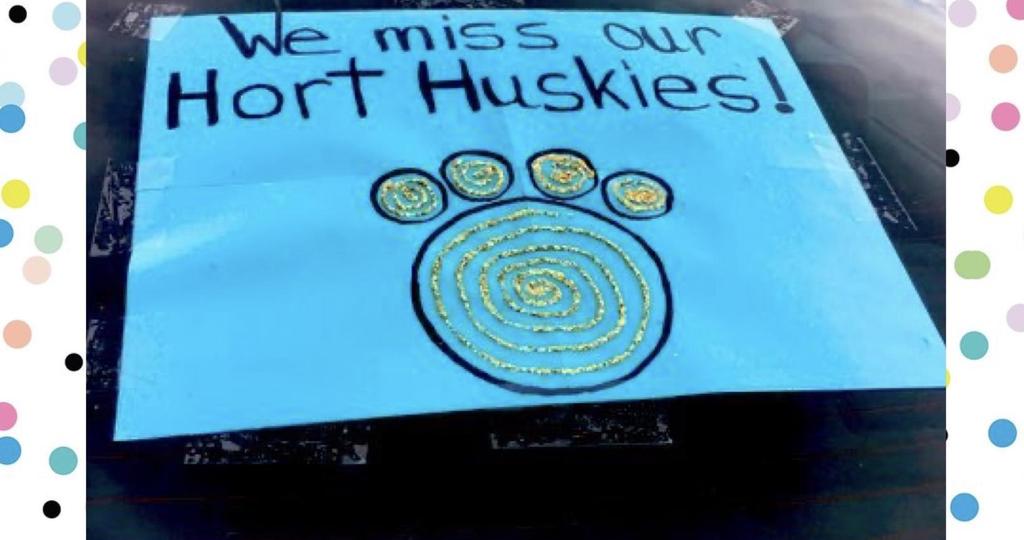 We miss our
Hort Huskies!